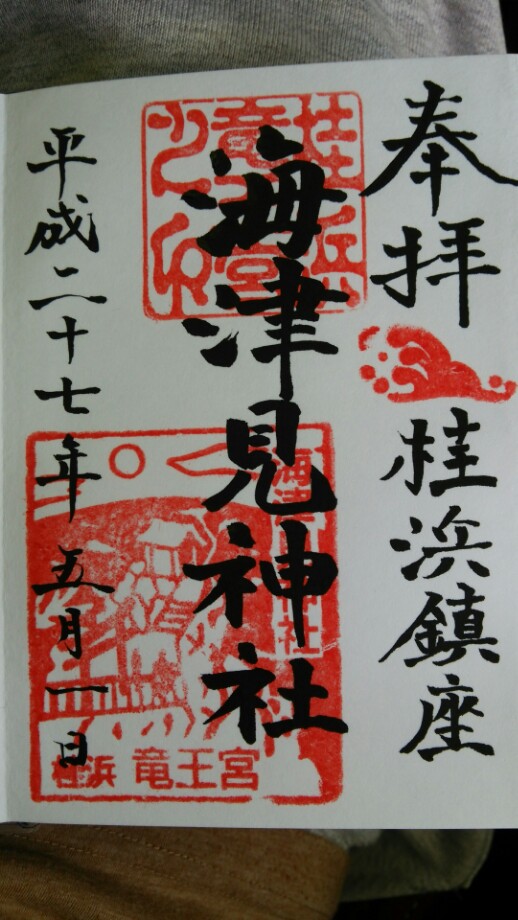 奉拝
桂浜鎮座
海津見神社
平成二十七年五月一日
海津見神社
桂浜 竜王宮